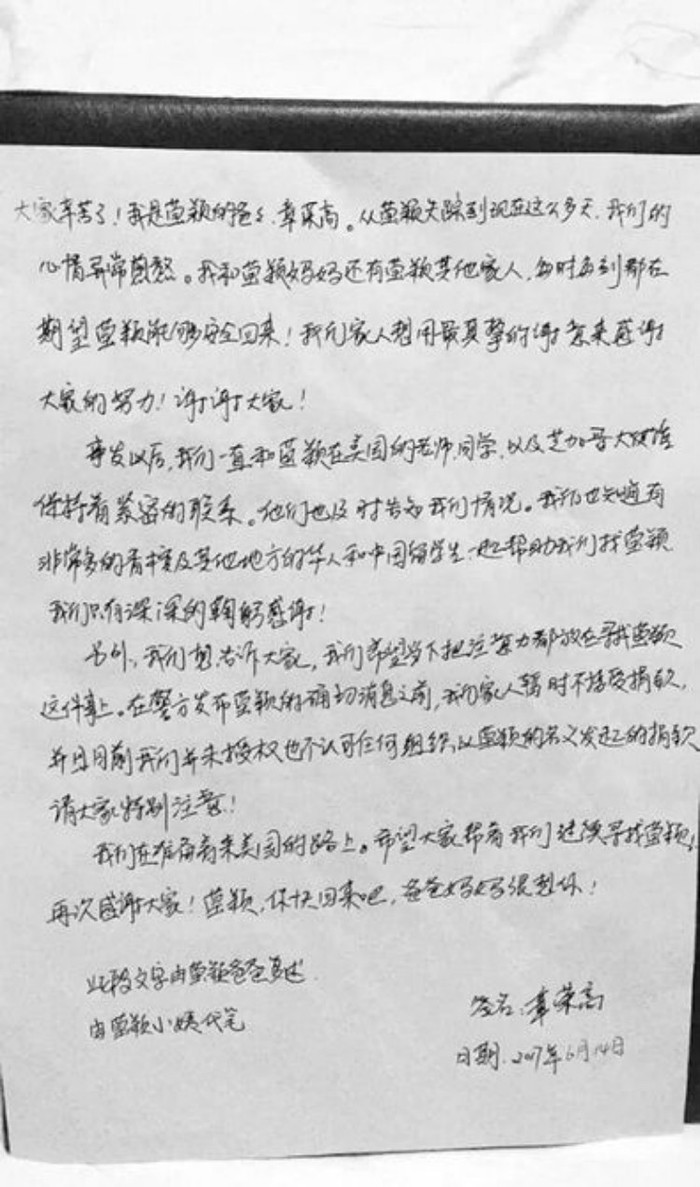 大家辛苦了！我是莹颖的爸爸，章荣高。从莹颖失踪到现在这么多天，我们的
心情异常煎熬。我和莹颖妈妈还有莹颖其他家人，每时每刻都在
期望莹颖能够安全回来！我们家人想用最真挚的谢意来感谢
大家的努力！谢谢大家！
事发以后，我们一直和莹颖在美国的老师、同学，以及芝加哥大使馆
保持着紧密的联系。他们也及时告知我们情况。我们也知道有
非常多的香槟及其他地方的华人和中国留学生一起帮助我们找莹颖
我们只有深深的鞠躬感谢！
另外，我们想告诉大家，我们希望当下把注意力都放在寻找莹颖
这件事上。在警方发布莹颖的确切消息之前，我们家人暂时不接受捐款，
并且目前我们并未授权也不认可任何组织以莹颖的名义发起的捐款
请大家特别注意！
我们在准备着来美国的路上。希望大家帮着我们继续寻找莹颖！
再次感谢大家！莹颖，你快回来吧，爸爸妈妈很想你！
此段文字由莹颖爸爸口述
由莹颖小姨代笔
签名：章荣高
日期：2017年6月14日